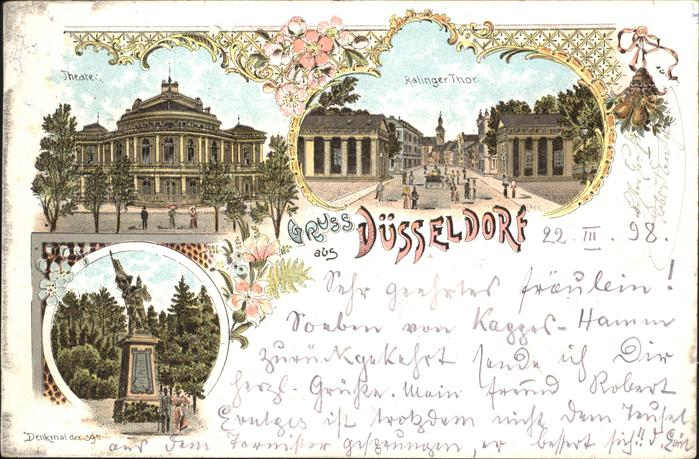 Theater.
Ratinger Thor.
GRUSS
aus
DÜSSELDORF
22. III. 98.
Sehr geehrtes Fräulein!
Soeben von Kappes-Hamm
zurückgekehrt sende ich Dir
herzl. Grüße. Mein Freund Robert
ist trotzdem nicht dem Teufel
aus dem Tornister gesprungen, er bessert sich!!
Denkmal der 39er